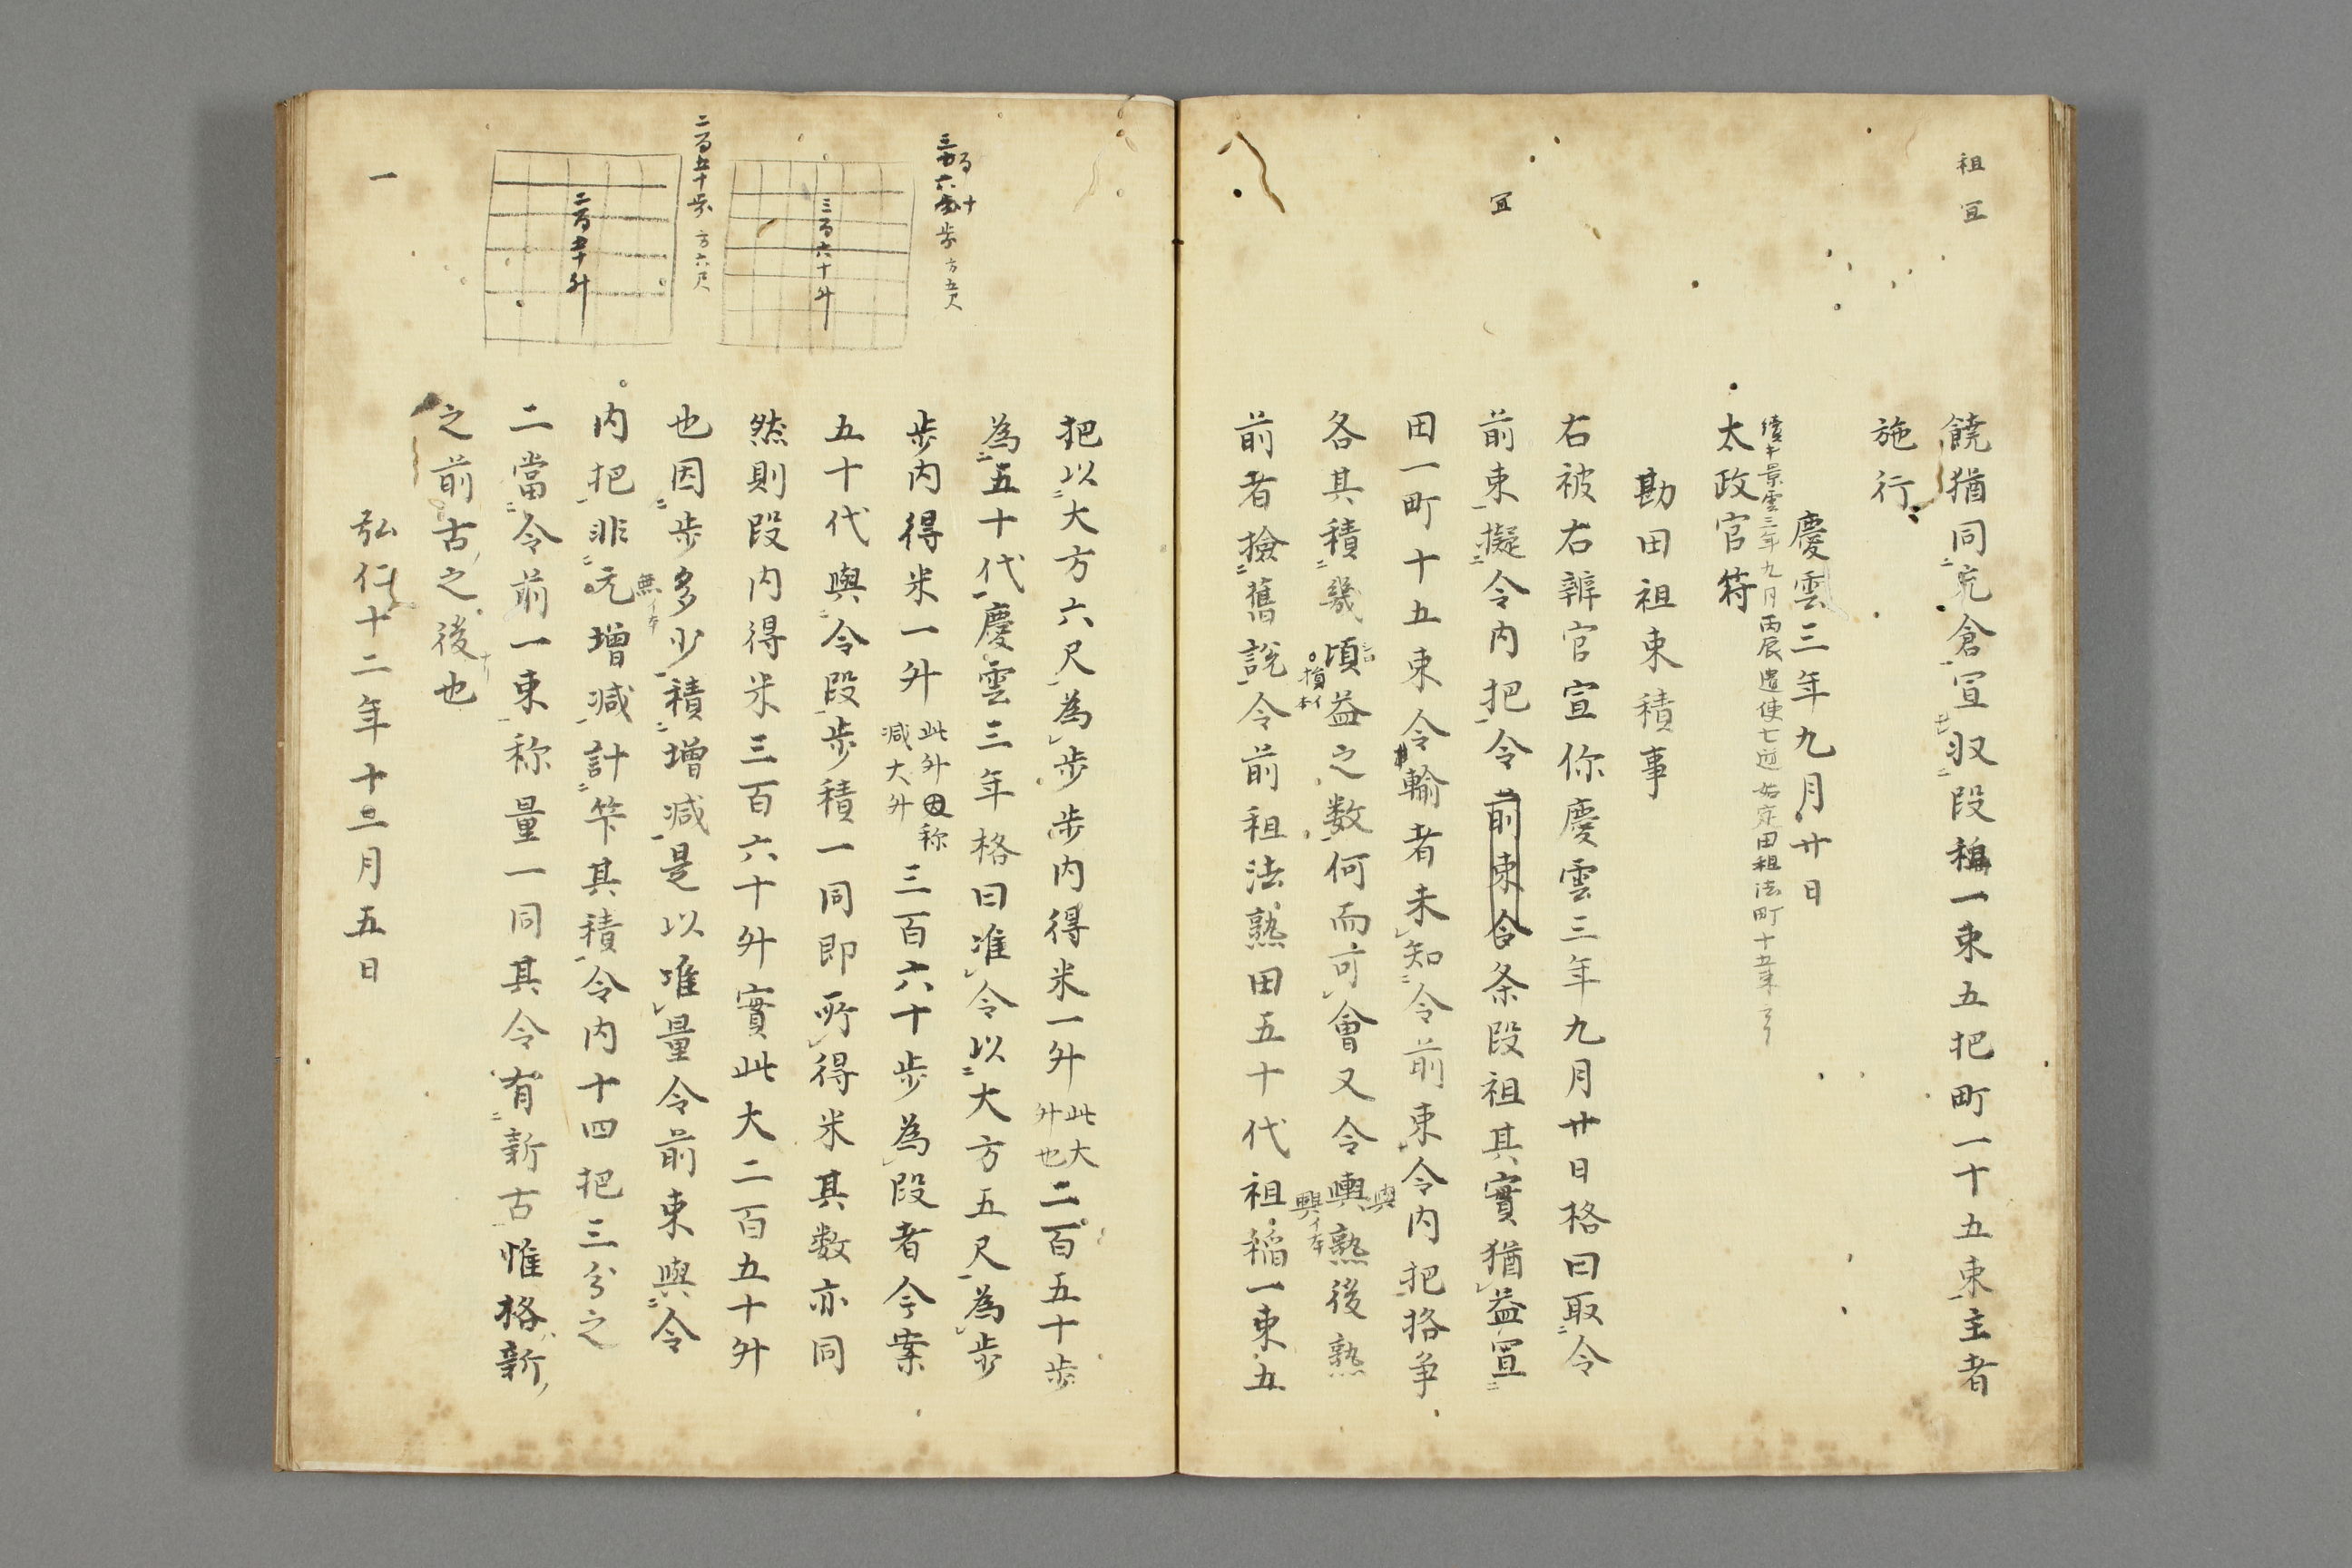 祖 冝
饒猶同充倉宣収段稱一束五把町一十五束主者
施行
慶雲三年九月廿日
景雲三年九月丙辰遣使七道始定田租法町十五束云々
太政官符
勘田祖束積事
右被右辨官宣你慶雲三年九月廿日格曰取令
冝
前束擬令内把令前束令条段祖其實猶益宣
田一町十五束令輸者未知令前束令内把挌争
各其積幾頃益之数何而可會又令輿熟後熟
損イ本
與
興イ本
前者撿舊說令前租法熟田五十代祖稲一束五
三百六十歩 方五尺
三百六十升
二百五十歩 方六尺
二百五十升
把以大方六尺為歩歩内得米一升此大升也二百五十歩
為五十代慶雲三年格曰准令以大方五尺為歩
歩内得米一升此升因称減大升三百六十歩為段者今案
五十代與令段歩積一同即所得米其数亦同
然則段内得米三百六十升實此大二百五十升
也因歩多少積增減是以唯量令前束與令
無イ本
内把非元增減計笇其積令内十四把三分之
二當令前一束称量一同其令有新古惟格新
之前古之後也
一
弘仁十二年十二月五日